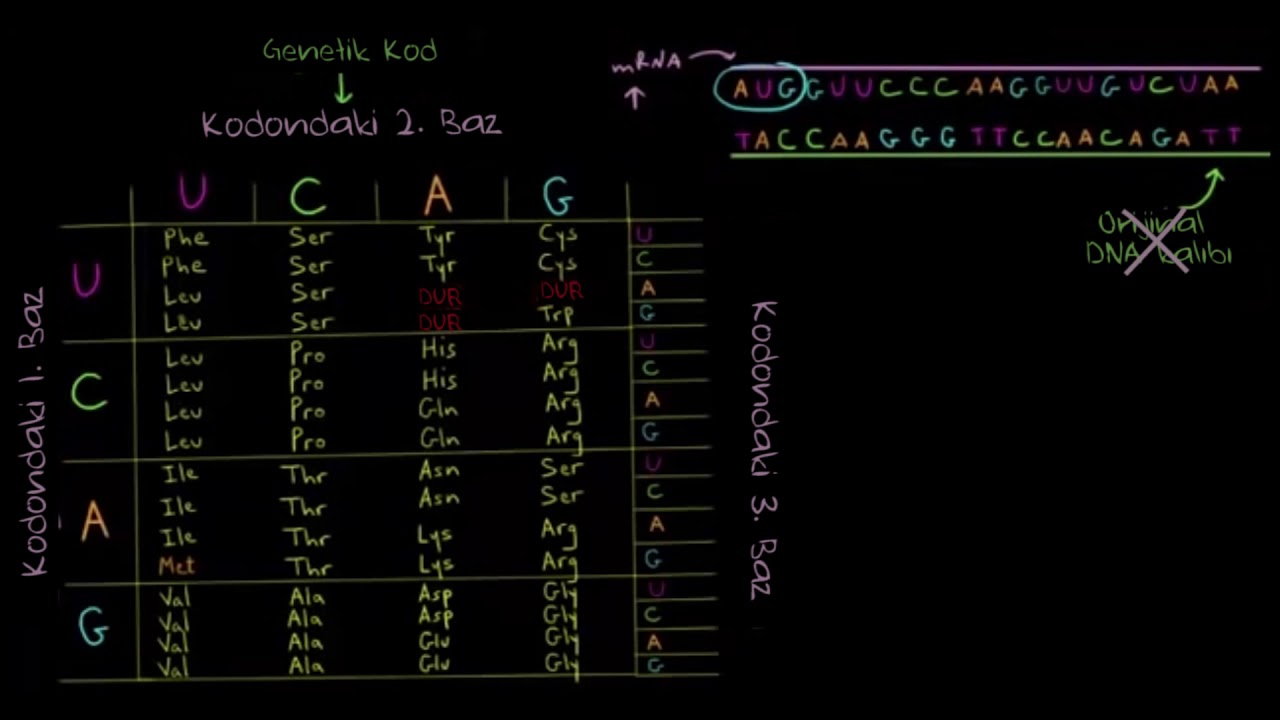 Genetik Kod
Kodondaki 2. Baz
mRNA
A U G G U U C C C A A G G U U G U C U A A
T A C C A A G G G T T C C A A C A G A T T
Orijinal
DNA Kalıbı
U C A G
Kodondaki 1. Baz
Kodondaki 3. Baz
U
Phe Ser Tyr Cys U
Phe Ser Tyr Cys C
Leu Ser DUR DUR A
Leu Ser DUR Trp G
C
Leu Pro His Arg U
Leu Pro His Arg C
Leu Pro Gln Arg A
Leu Pro Gln Arg G
A
Ile Thr Asn Ser U
Ile Thr Asn Ser C
Ile Thr Lys Arg A
Met Thr Lys Arg G
G
Val Ala Asp Gly U
Val Ala Asp Gly C
Val Ala Glu Gly A
Val Ala Glu Gly G